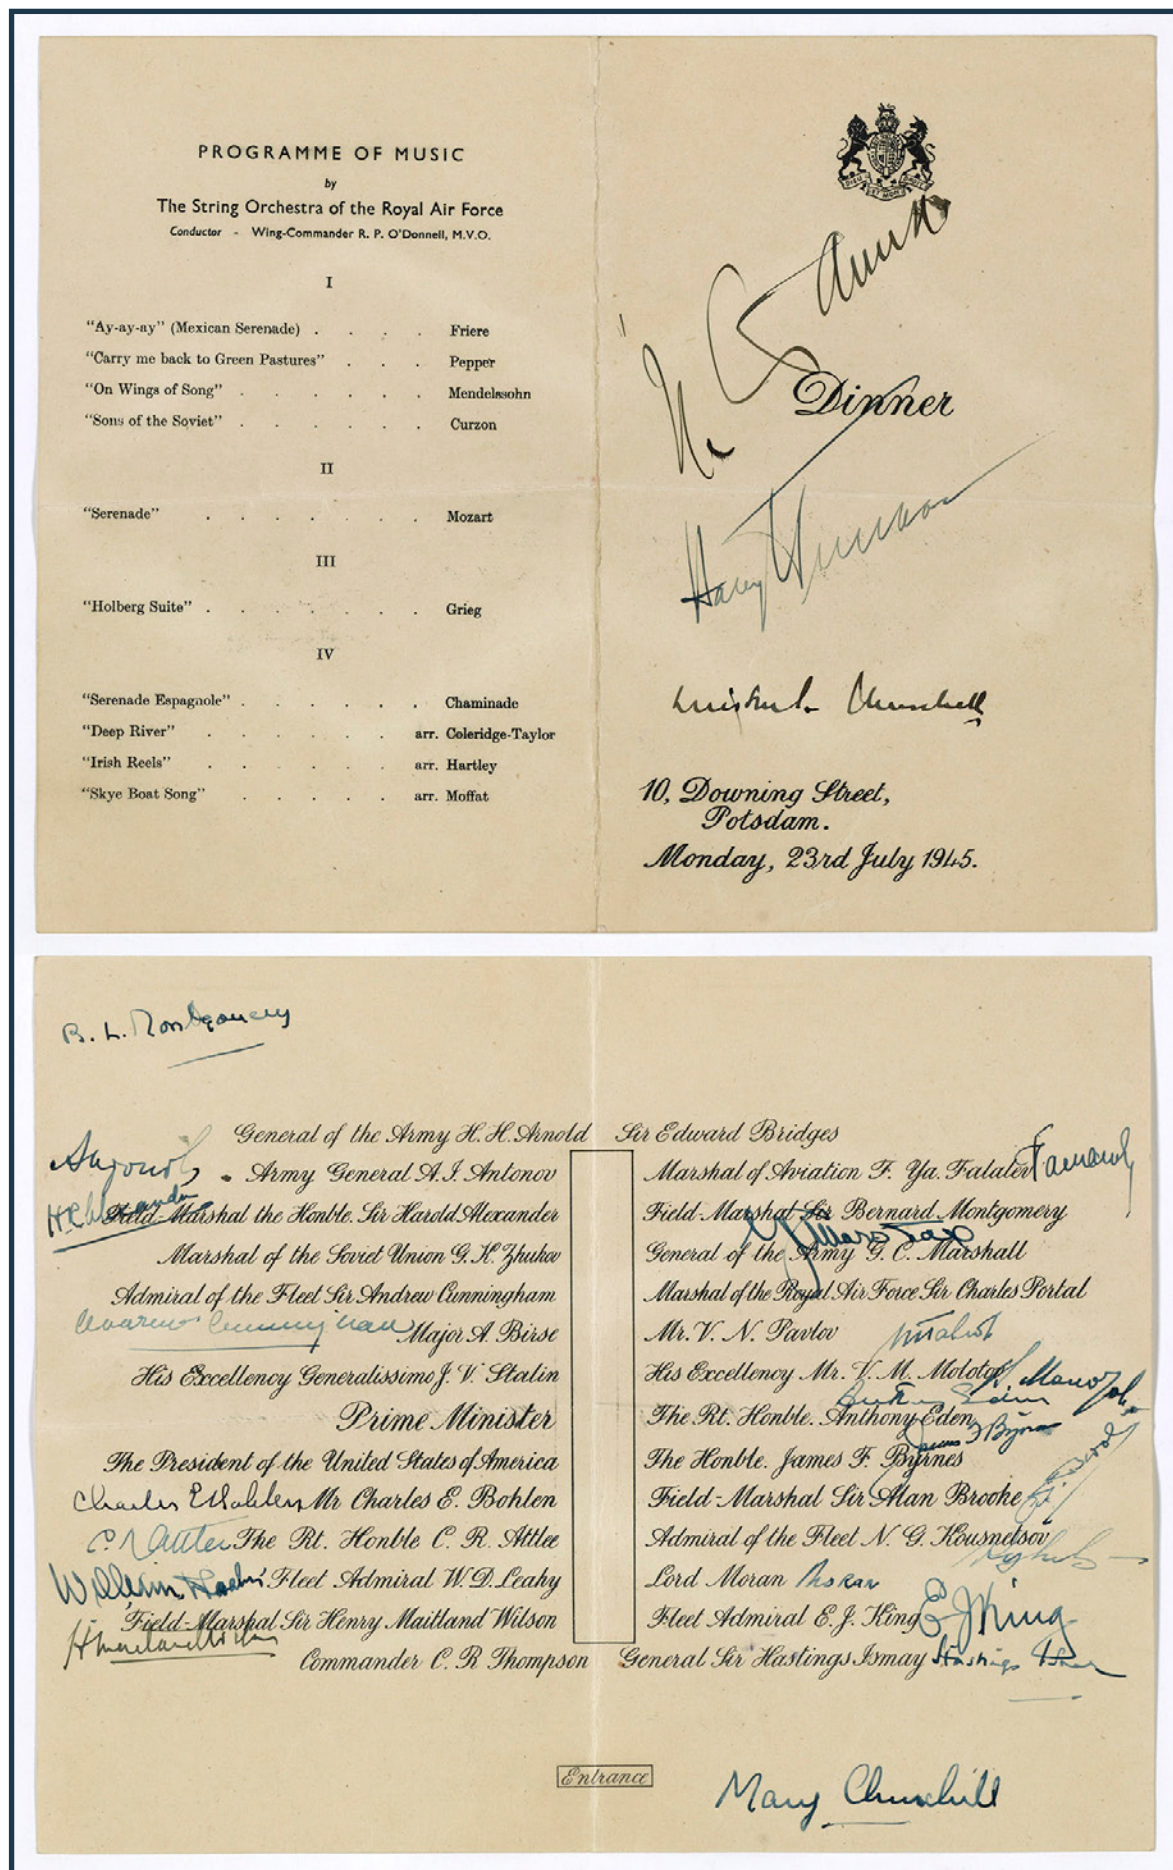 PROGRAMME OF MUSIC
by
The String Orchestra of the Royal Air Force
Conductor - Wing-Commander R. P. O'Donnell, M.V.O.
I
"Ay-ay-ay" (Mexican Serenade) . . . . Friere
"Carry me back to Green Pastures" . . . Pepper
"On Wings of Song" . . . . . . Mendelssohn
"Sons of the Soviet" . . . . . . Curzon
II
"Serenade" . . . . . . . Mozart
III
"Holberg Suite" . . . . . . . Grieg
IV
"Serenade Espagnole" . . . . . . Chaminade
"Deep River" . . . . . . arr. Coleridge-Taylor
"Irish Reels" . . . . . . arr. Hartley
"Skye Boat Song" . . . . . arr. Moffat
Dinner
Harry Truman
Winston S. Churchill
10, Downing Street,
Potsdam.
Monday, 23rd July 1945.
B. L. Montgomery
General of the Army H. H. Arnold
Army General A. I. Antonov
Field-Marshal the Honble. Sir Harold Alexander
Marshal of the Soviet Union G. K. Zhukov
Admiral of the Fleet Sir Andrew Cunningham
Cunningham
Major A. Birse
His Excellency Generalissimo J. V. Stalin
Prime Minister
The President of the United States of America
Charles E Bohlen Mr Charles E. Bohlen
C R Attlee The Rt. Honble C. R. Attlee
William Leahy Fleet Admiral W. D. Leahy
Field-Marshal Sir Henry Maitland Wilson
H Maitland Wilson
Commander C. R Thompson
Sir Edward Bridges
Marshal of Aviation F. Ya. Falalev
Field-Marshal Sir Bernard Montgomery
General of the Army G. C. Marshall
Marshal of the Royal Air Force Sir Charles Portal
Mr. V. N. Pavlov
His Excellency Mr. V. M. Molotov
Anthony Eden
The Rt. Honble. Anthony Eden
James F Byrnes
The Honble. James F. Byrnes
Field-Marshal Sir Alan Brooke
Admiral of the Fleet N. G. Kousnetsov
Lord Moran Moran
Fleet Admiral E. J. King E J King
General Sir Hastings Ismay Hastings Ismay
Entrance
Mary Churchill